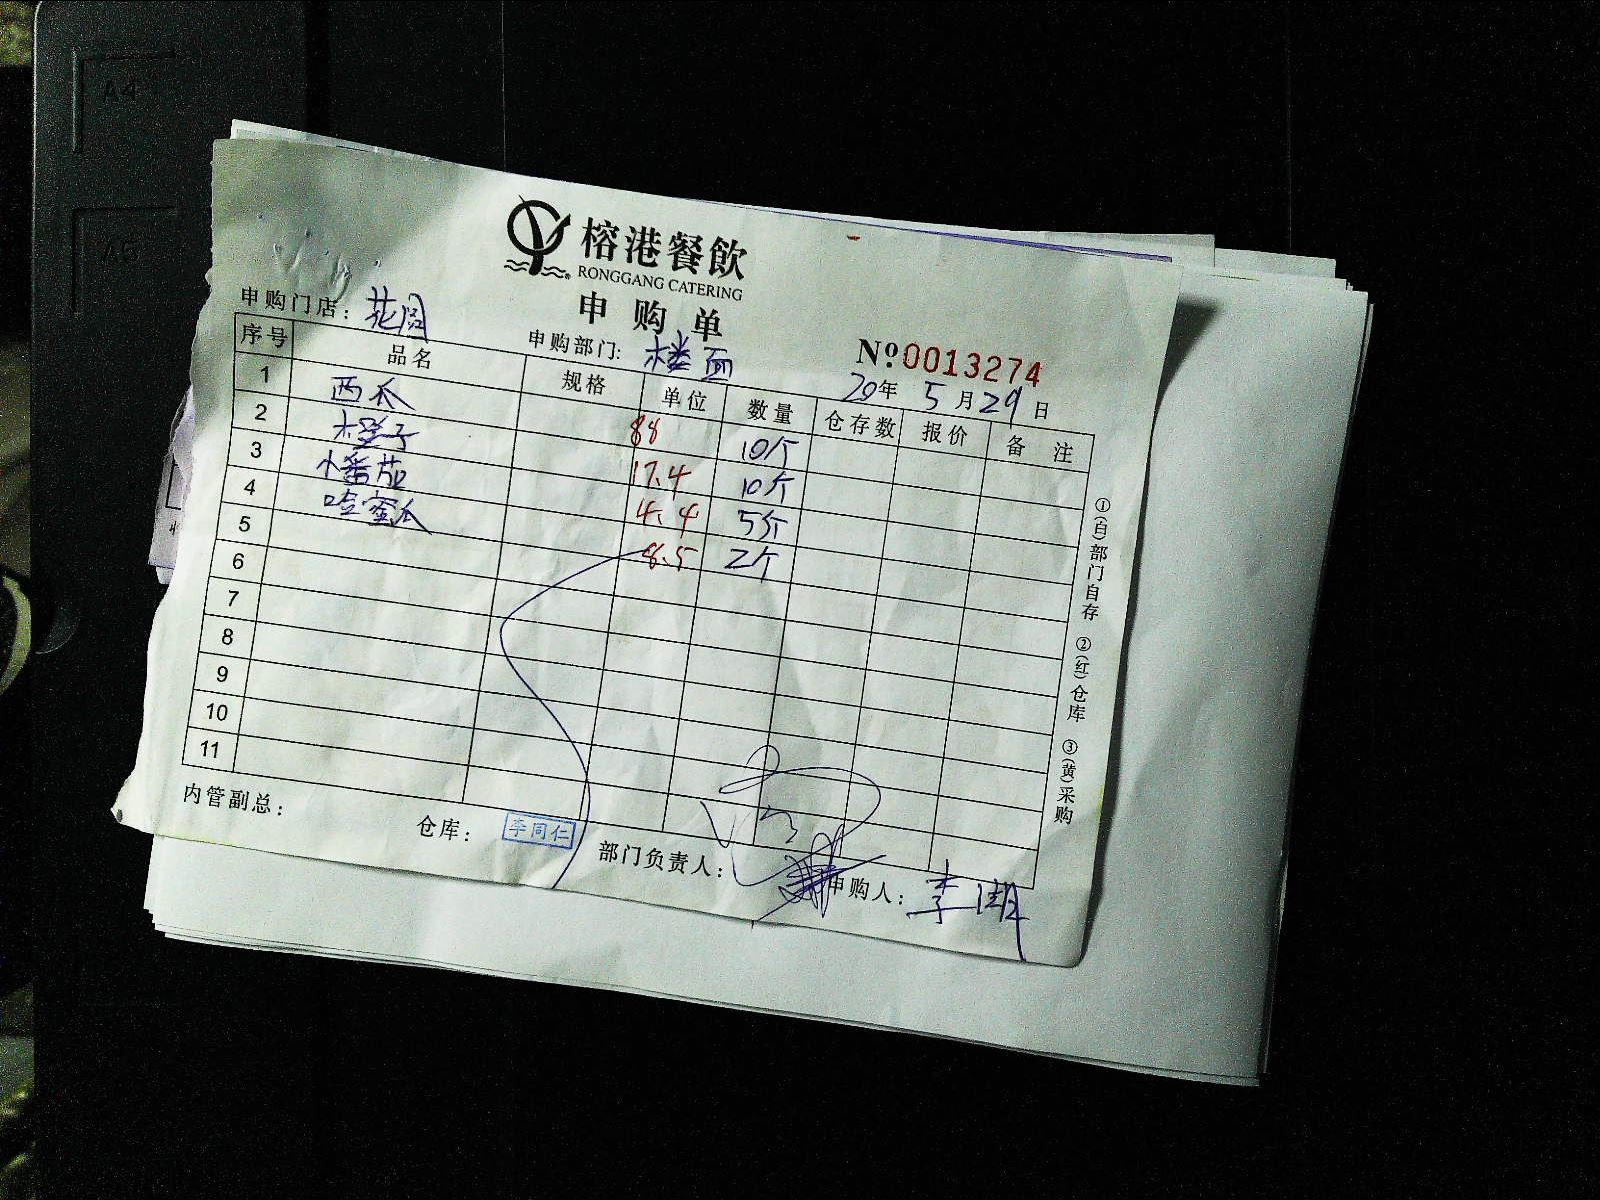 榕港餐飲
RONGGANG CATERING
申购单
申购门店： 花园
申购部门： 楼面
№0013274
20年 5月29日
序号 品名 规格 单位 数量 仓存数 报价 备 注
1 西瓜 88 10个
2 橙子 17.4 10个
3 小番茄 4.4 5斤
4 哈蜜瓜 8.5 2个
5
6
7
8
9
10
11
①(白)部门自存 ②(红)仓库 ③(黄)采购
内管副总：
仓库： 李同仁
部门负责人：
申购人： 李
A4
A5